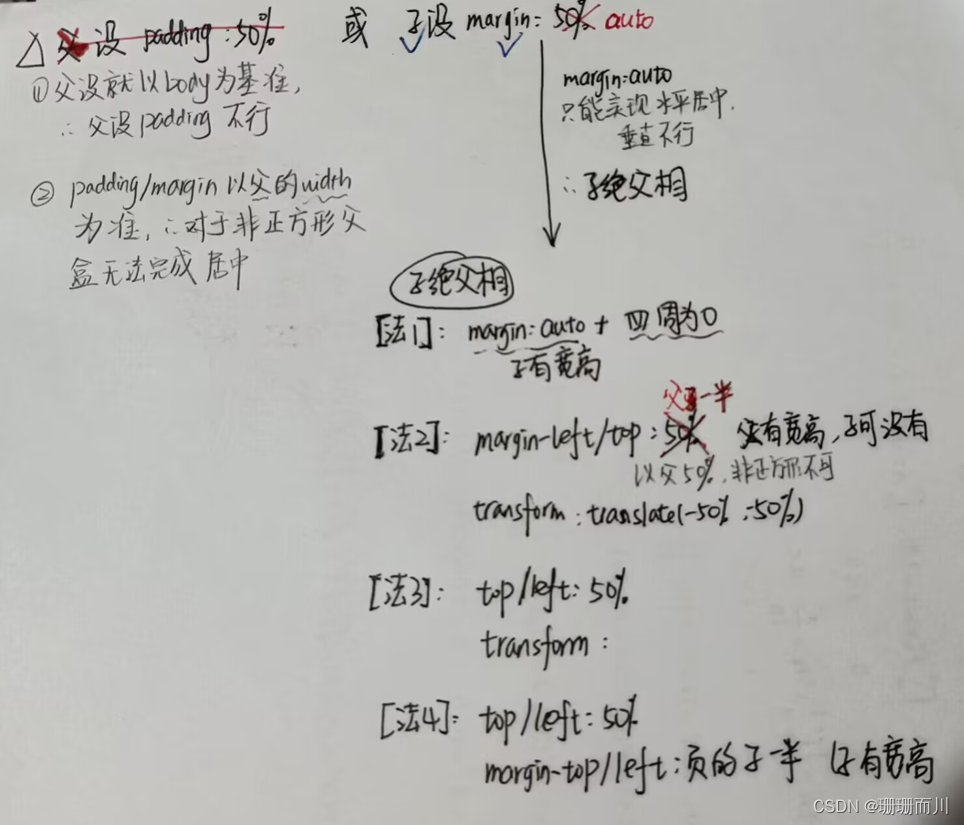 △ 父设 padding:50% 或 子设 margin:50% auto
①父设就以body为基准,
∴ 父设padding 不行
② padding/margin 以父的width
为准, ∴对于非正方形父
盒无法完成居中
margin:auto
只能实现水平居中.
垂直不行
∴子绝父相
子绝父相
[法1]: margin:auto + 四周为0
子有宽高
父一半
[法2]: margin-left/top:50% 父有宽高,子可没有
以父50%,非正方形不可
transform:translate(-50%,-50%)
[法3]: top/left:50%
transform:
[法4]: top/left:50%
margin-top/left:负的子一半 子有宽高
CSDN @珊珊而川